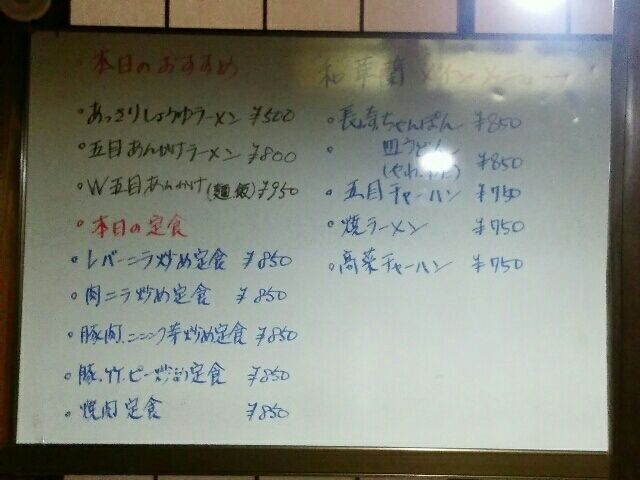 本日のおすすめ
・あっさりしょうゆラーメン ¥500
・五目あんかけラーメン ¥800
・W五目あんかけ(麺,飯) ¥950
・本日の定食
・レバーニラ炒め定食 ¥850
・肉ニラ炒め定食 ¥850
・豚肉、ニンニク芽炒め定食 ¥850
・豚、竹、ピー炒め定食 ¥850
・焼肉定食 ¥850
和華蘭
・長崎ちゃんぽん ¥850
・皿うどん ¥850
・五目チャーハン ¥750
・焼ラーメン ¥750
・高菜チャーハン ¥750